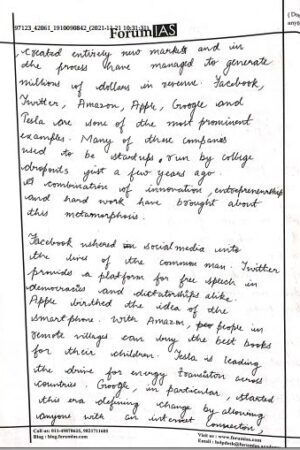 97123_42061_1910090842_(2021-11-21 10:31:31)
ForumIAS
created entirely new markets and in
the process have managed to generate
millions of dollars in revenue. Facebook,
Twitter, Amazon, Apple, Google and
Tesla are some of the most prominent
examples. Many of these companies
used to be startups, run by college
dropouts just a few years ago.
A combination of innovation, entrepreneurship
and hard work have brought about
this metamorphosis.
Facebook ushered social media into
the lives of the common man. Twitter
provides a platform for free speech in
democracies and dictatorships alike.
Apple birthed the idea of the
smartphone. With Amazon, people in
remote villages can buy the best books
for their children. Tesla is leading
the drive for energy transition across
countries. Google, in particular, started
this era defining change by allowing
anyone with an internet connection,
Call us: 011-49878625, 9821711605
Blog : blog.forumias.com
Visit us : www.forumias.com
Email : helpdesk@forumias.academy